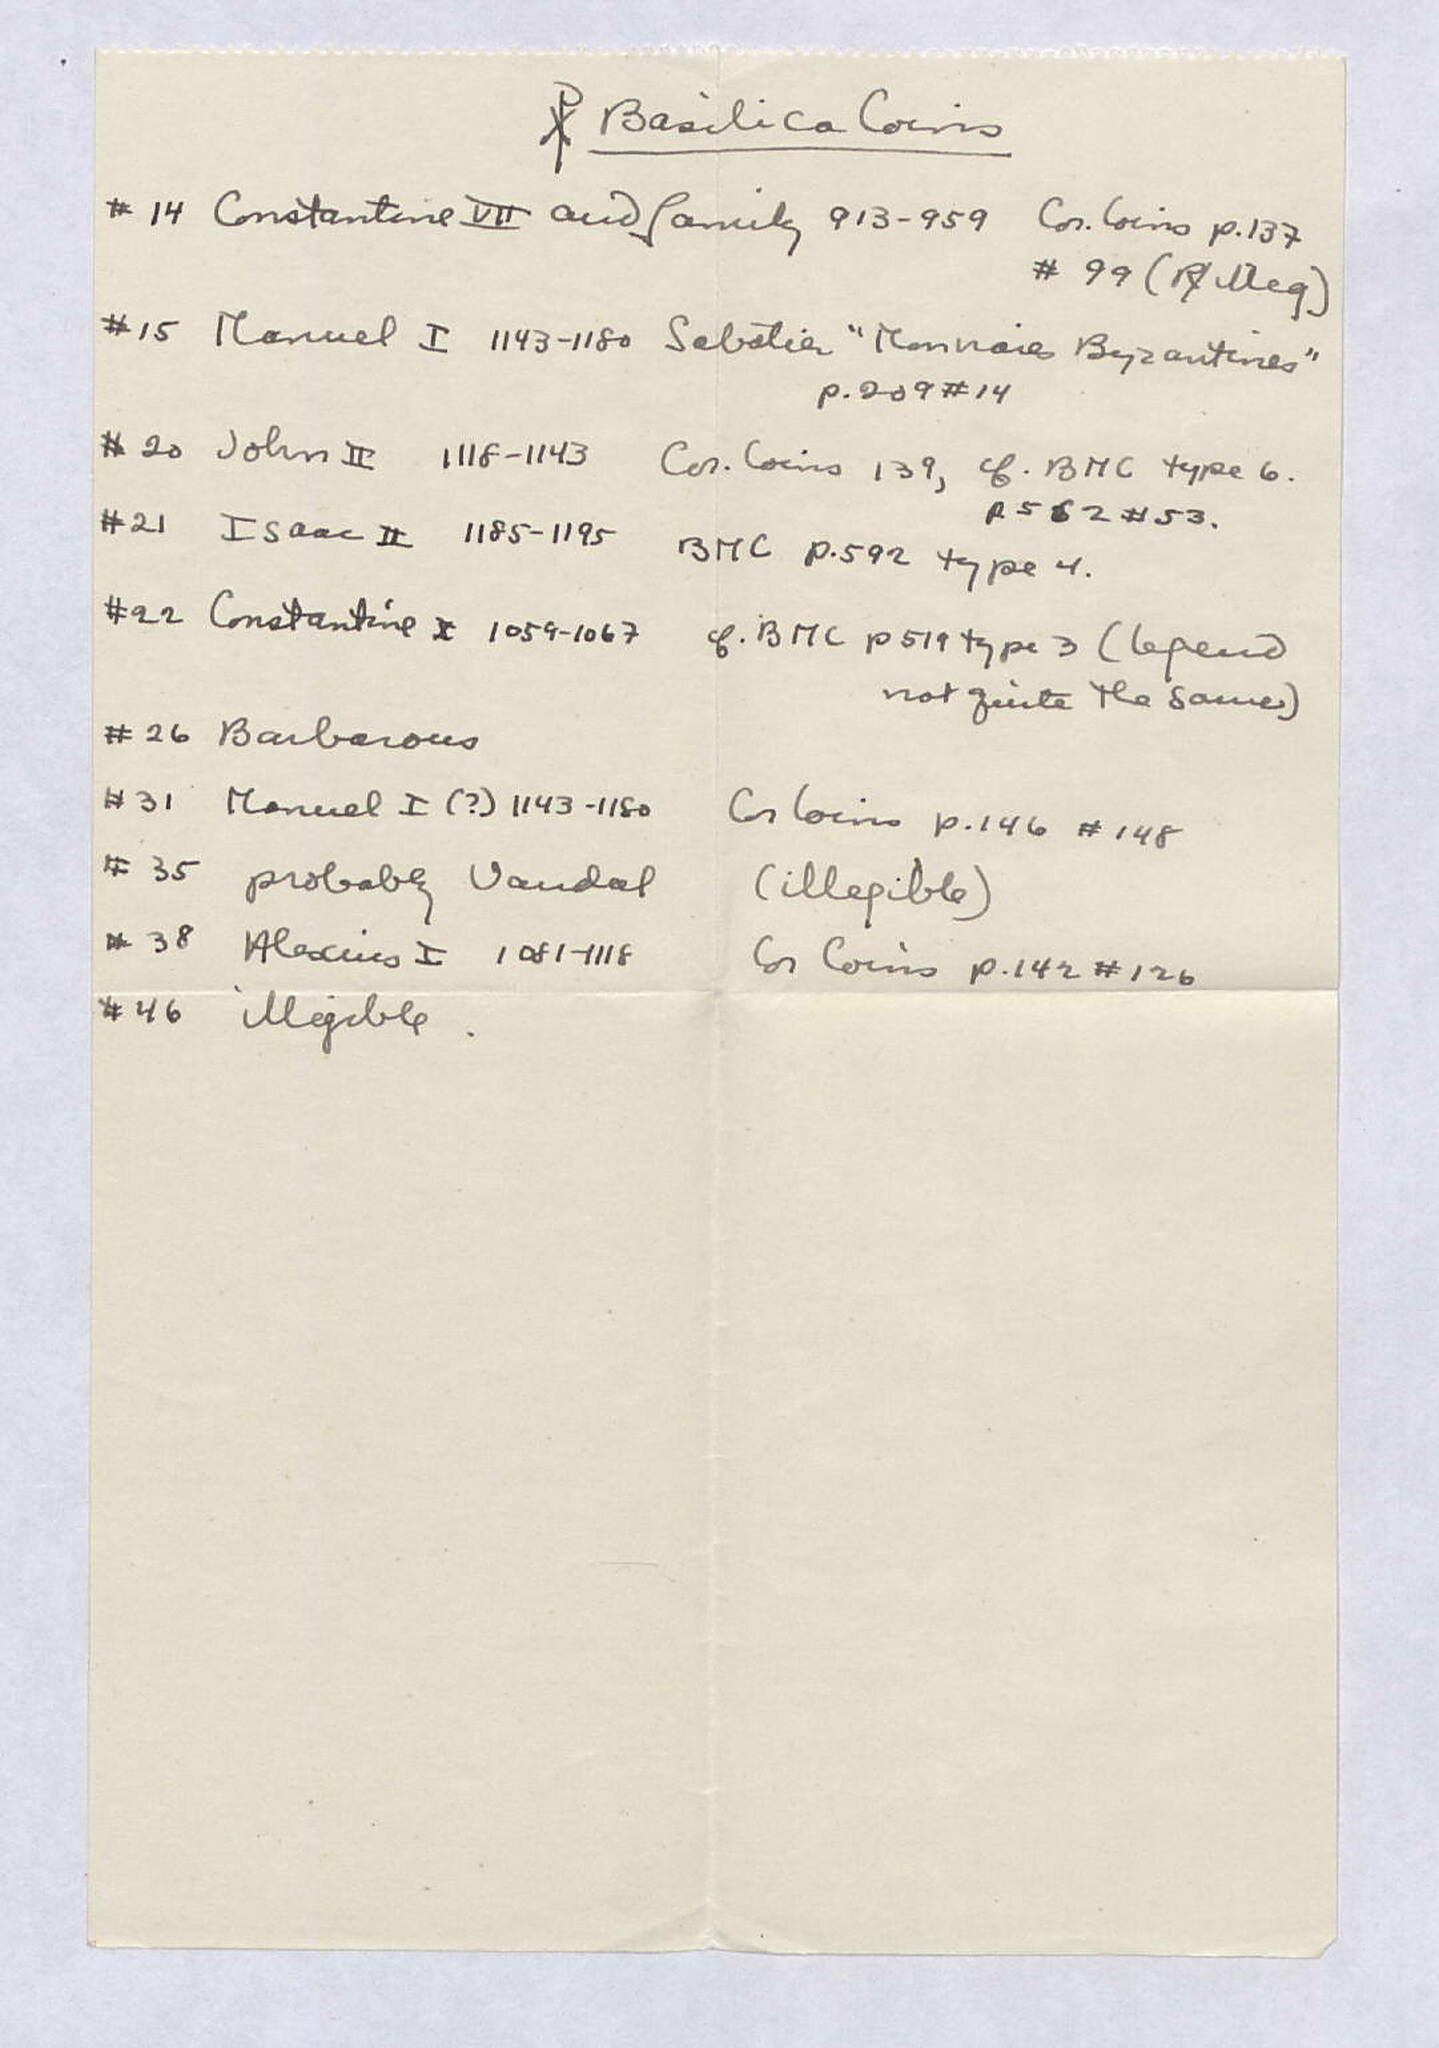 ☧ Basilica Coins
# 14 Constantine VII and family 913-959 Cor. Coins p.137
# 99 (R illeg)
#15 Manuel I 1143-1180 Sabatier "Monnaies Byzantines"
p.209 #14
# 20 John II 1118-1143 Cor. Coins 139, cf. BMC type 6.
p 562 #53.
#21 Isaac II 1185-1195 BMC p.592 type 4.
#22 Constantine X 1059-1067 cf. BMC p 519 type 3 (legend
not quite the same)
# 26 Barbarous
# 31 Manuel I (?) 1143-1180 Cor Coins p.146 # 148
# 35 probably Vandal (illegible)
# 38 Alexius I 1081-1118 Cor Coins p.142 #126
# 46 illegible.